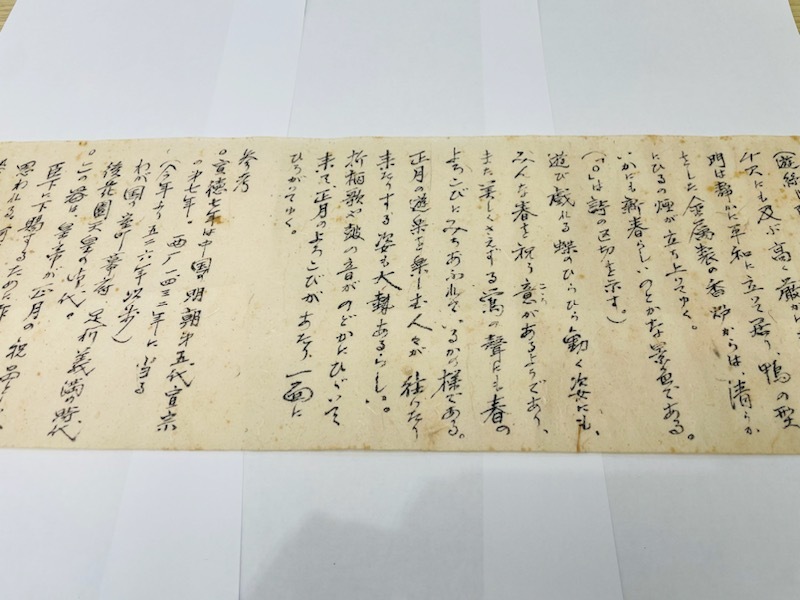 (遊絲は
十六にも及ぶ高く厳かな
門は静かに平和に立って居り、鴨の型
をした金属製の香炉からは、清らか
にひるの煙が立ち上ってゆく。
いかにも新春らしいのどかな景色である。
(「○」は詩の区切を示す。)
遊び戯れる蝶のひらひら動く姿にも、
みんな春を祝う意があるようであり、
こころ
また美しくさえずる鶯の聲にも春の
よろこびにみちあふれているかの様である。
正月の遊楽を楽しむ人々が往ったり
来たりする姿も大勢あるらしい。
折柏歌や鼓の音がのどかにひびいて
来て正月のよろこびがあたり一面に
ひろがってゆく。
参考
○宣徳七年は中国の明朝第五代宣宗
の第七年。西一四三二年に当る
(今年より五二六年以歩)
わが国の室町幕府足利義満の時代
後花園天皇の時代。
○この器は皇帝が正月の祝
臣下に下賜するために作
思われる